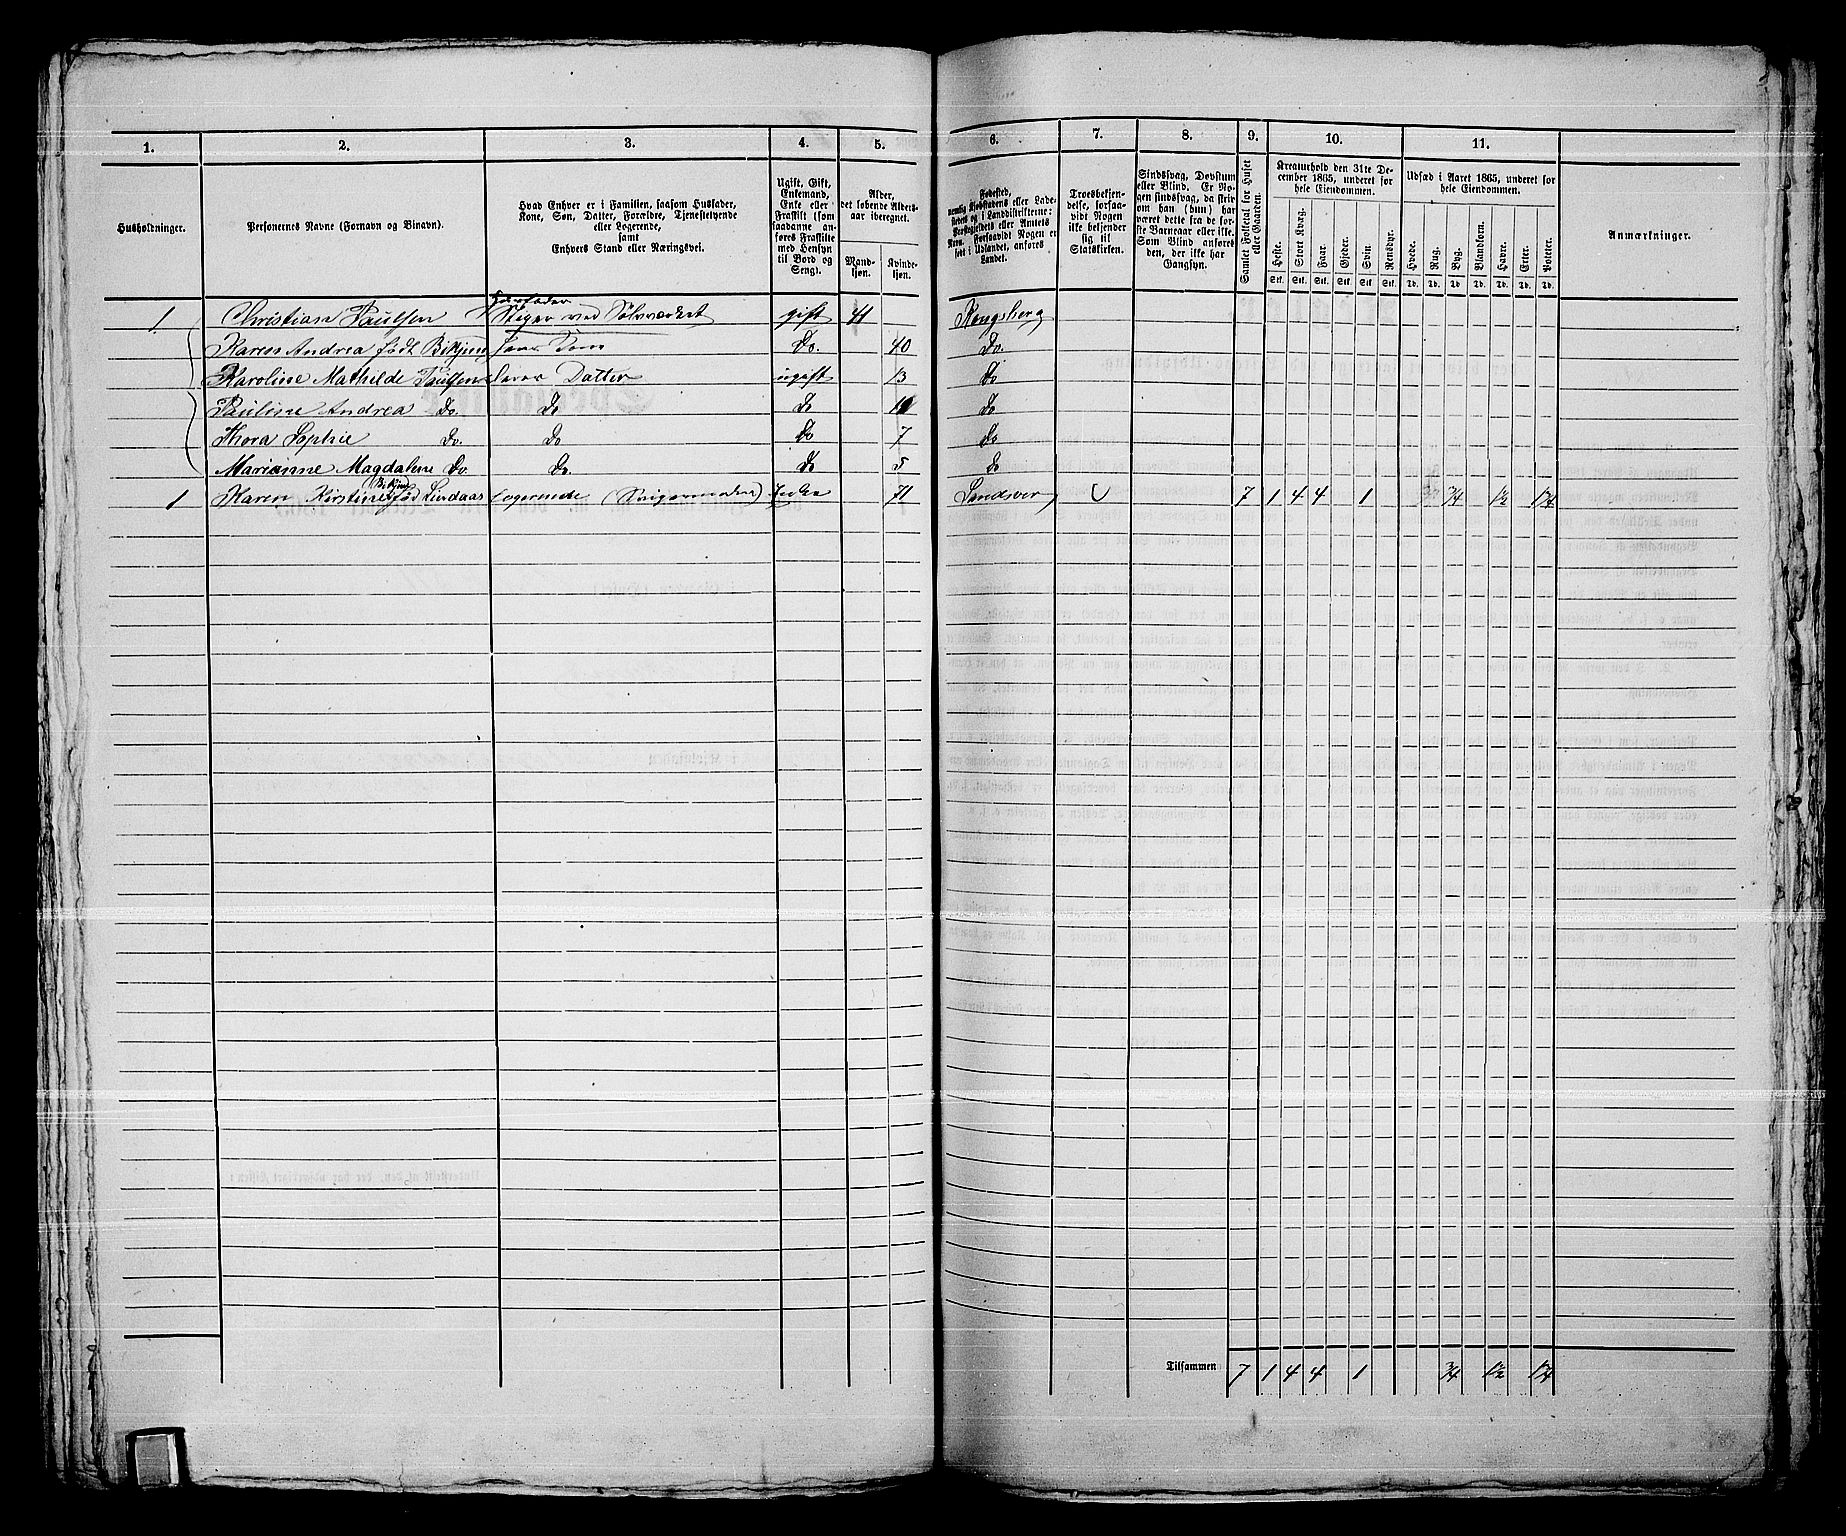 1. 2. 3. 4. 5. 6. 7. 8. 9. 10. 11.
Husholdninger.
Personernes Navne (Fornavn og Binavn).
Hvad Enhver er i Familien, saasom Husfader,
Kone, Søn, Datter, Forældre, Tjenestetyende
eller Logerende,
samt
Enhvers Stand eller Næringsvei.
Ugift, Gift,
Enkemand,
Enke eller
Fraskilt (som
saadanne an-
føres Fraskilte
med Hensyn
til Bord og
Seng).
Alder,
det løbende Alders-
aar iberegnet.
Mand-
kjøn.
Kvinde-
kjøn.
Fødested,
nemlig Kjøbstadens eller Lade-
stedets og i Landdistrikterne:
Præstegjeldets eller Amtets
Navn. Forsaavidt Nogen er
født i Udlandet, anføres
Landet.
Troesbekjen-
delse, forsaa-
vidt Nogen
ikke bekjender
sig til
Statskirken.
Sindssvag, Døvstum
eller Blind. Er No-
gen sindssvag, da skriv
om han (hun) har
været dette fra de før-
ste Barneaar eller ikke.
Som Blind anføres
den, der ikke har
Gangsyn.
Samlet Folketal for Huset
eller Gaarden.
Kreaturhold den 31te De-
cember 1865, underet for
hele Eiendommen.
Heste. Stort Kvæg. Faar. Gjeder. Svin. Rensdyr.
Stk. Stk. Stk. Stk. Stk. Stk.
Udsæd i Aaret 1865, underet for
hele Eiendommen.
Hvede. Rug. Byg. Blandkorn. Havre. Erter. Poteter.
Td. Td. Td. Td. Td. Td. Td.
Anmærkninger.
Huusfader
1. Christian Paulsen Stiger ved Sølvværket gift 41 Kongsberg
Karen Andrea født Bikjern hans Kone Do. 40 Do.
Karoline Mathilde Paulsen deres Datter ugift 13 Do
Pauline Andrea Do. Do Do Do
Thora Sophie Do. Do Do 7 Do
Marianne Magdalene Do. Do. Do 5 do
1 Karen Kirstine fød Lindaas Logerende Enke 71 Sandsver 7 1 4 4 1 3/4 1 1/2 1 1/4
Tilsammen 7 1 4 4 1 3/4 1 1/2 1 1/4